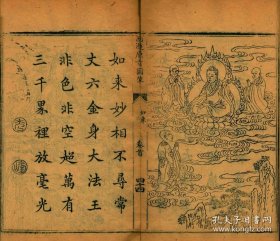 如來妙相不尋常
丈六金身大法王
非色非空超萬有
三千界裡放毫光
如來
卷首
孔夫子旧书网